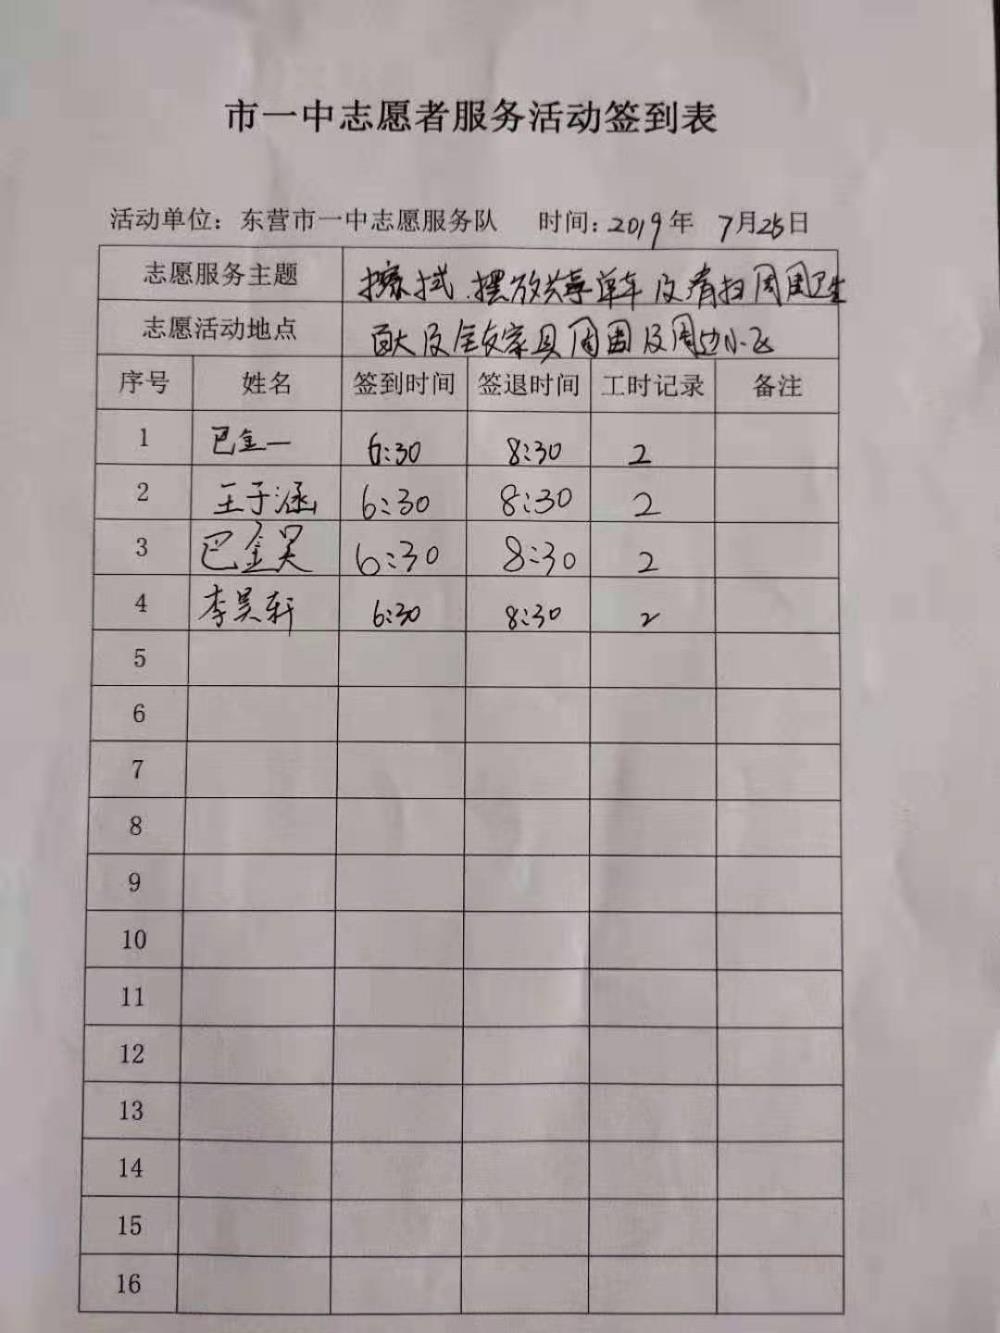 市一中志愿者服务活动签到表
活动单位：东营市一中志愿服务队 时间：2019年 7月25日
志愿服务主题 擦拭、摆放共享单车及清扫周围卫生
志愿活动地点 百大及全友家具周围及周边小区
序号 姓名 签到时间 签退时间 工时记录 备注
1 巴金一 6:30 8:30 2
2 王子涵 6:30 8:30 2
3 巴金昊 6:30 8:30 2
4 李昊轩 6:30 8:30 2
5
6
7
8
9
10
11
12
13
14
15
16